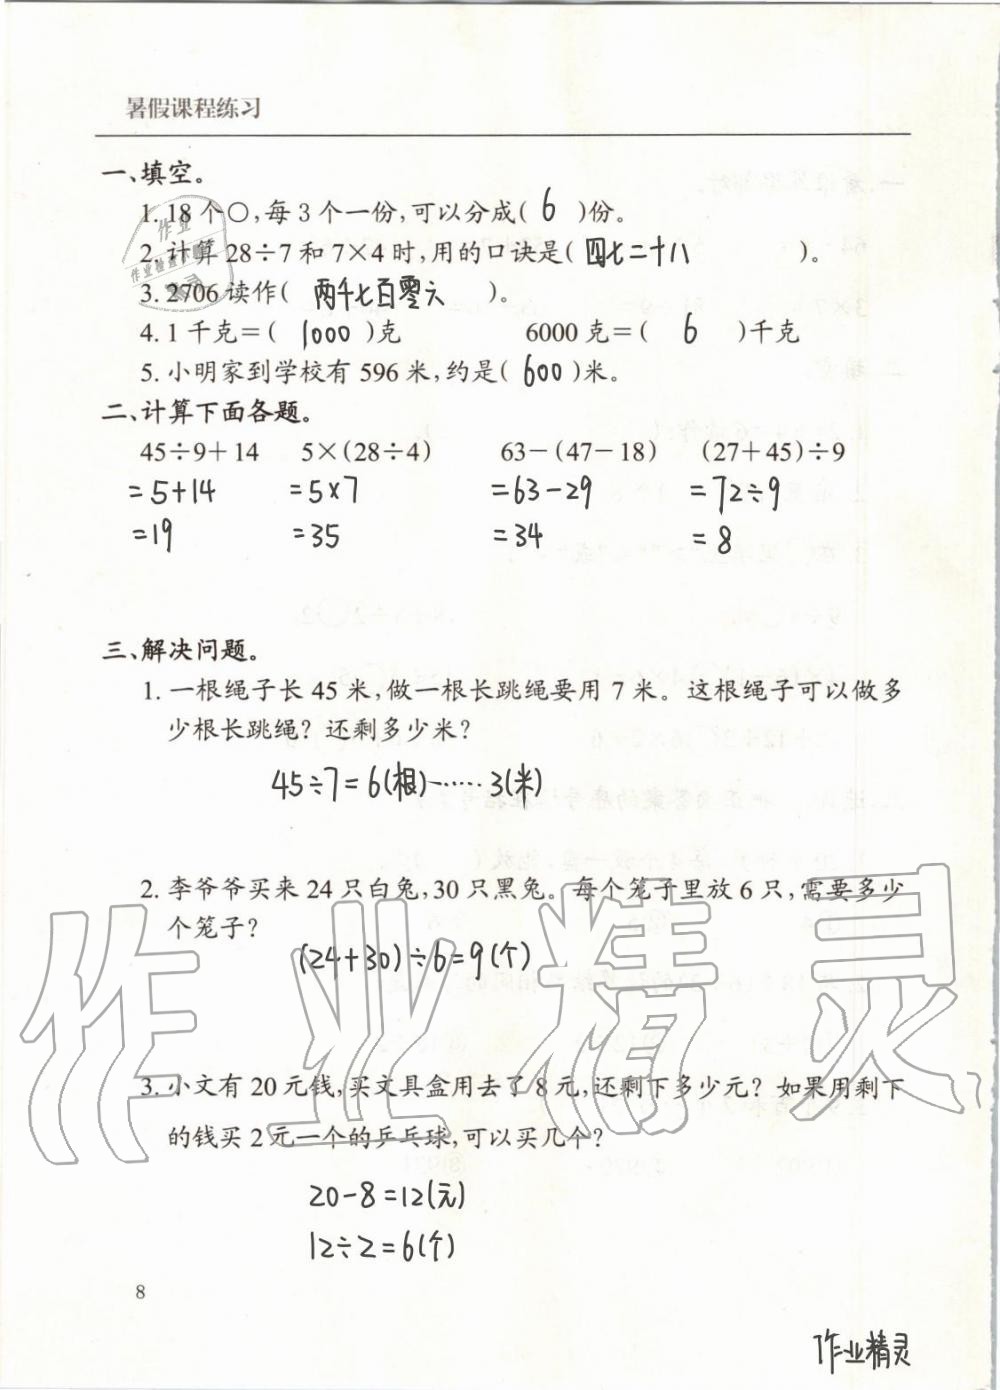 暑假课程练习
一、填空。
1. 18个○,每3个一份,可以分成( 6 )份。
2. 计算28÷7和7×4时,用的口诀是( 四七二十八 )。
3. 2706读作( 两千七百零六 )。
4. 1千克=( 1000 )克 6000克=( 6 )千克
5. 小明家到学校有596米,约是( 600 )米。
二、计算下面各题。
45÷9+14 5×(28÷4) 63-(47-18) (27+45)÷9
=5+14 =5×7 =63-29 =72÷9
=19 =35 =34 =8
三、解决问题。
1. 一根绳子长45米,做一根长跳绳要用7米。这根绳子可以做多
少根长跳绳?还剩多少米?
45÷7=6(根)……3(米)
2. 李爷爷买来24只白兔,30只黑兔。每个笼子里放6只,需要多少
个笼子?
(24+30)÷6=9(个)
3. 小文有20元钱,买文具盒用去了8元,还剩下多少元?如果用剩下
的钱买2元一个的乒乓球,可以买几个?
20-8=12(元)
12÷2=6(个)
8
作业精灵
作业精灵